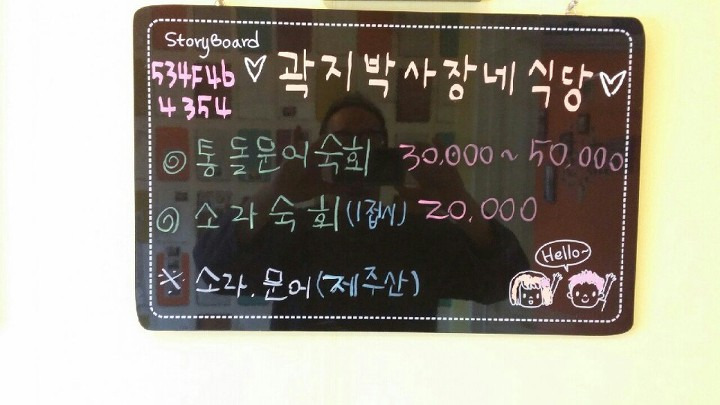 StoryBoard
534F4b
4354
♡ 곽지박사장네식당 ♡
◎ 통돌문어숙회 30,000~50,000
◎ 소라숙회(1접시) 20,000
※ 소라.문어(제주산)
Hello~